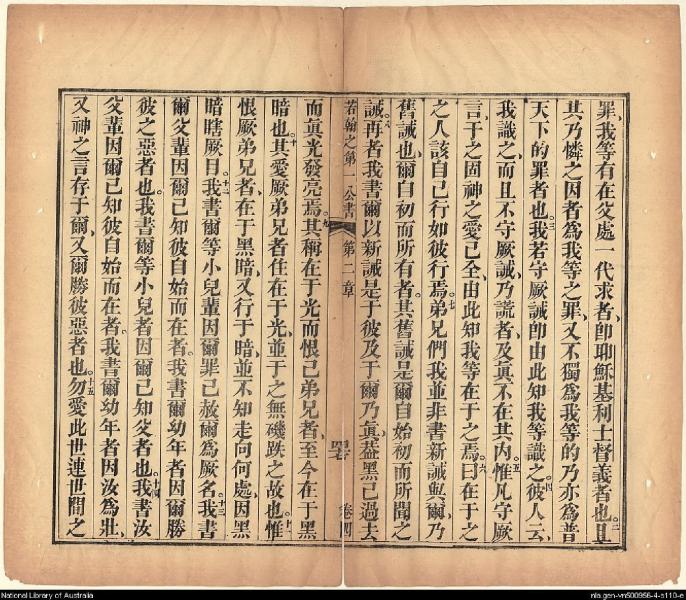 罪、我等有在父處一代求者、卽耶穌基利士督義者也。二且
其乃憐之因者爲我等之罪、又不獨爲我等的乃亦爲普
天下的罪者也。三我若守厥誡卽由此知我等識之。四彼人云、
我識之、而且不守厥誡、乃謊者、及眞不在其內。五惟凡守厥
言、于之固神之愛已全、由此知我等在于之焉。六曰在于之
之人該自己行如彼行焉。七弟兄們我並非書新誡與爾、乃
舊誡也、爾自初而所有者、其舊誡是爾自始初而所聞之
誡。八再者我書爾以新誡是于彼及于爾乃眞、蓋黑已過去、
若翰之第一公書 第二章 卷四
而眞光發亮焉。九其稱在于光而恨己弟兄者、至今在于黑
暗也。十其愛厥弟兄者住在于光、並于之無磯跌之故也。十一惟
恨厥弟兄者、在于黑暗、又行于暗、並不知走向何處、因黑
暗瞎厥目。十二我書爾等小兒輩因爾罪已赦爾爲厥名。十三我書
爾父輩因爾已知彼自始而在者。我書爾幼年者因爾勝
彼之惡者也。我書爾等小兒者因爾已知父者也。十四我書汝
父輩因爾已知彼自始而在者。我書爾幼年者因汝爲壯、
又神之言存于爾、又爾勝彼惡者也。十五勿愛此世連世間之
National Library of Australia
nla.gen-vn500956-4-s110-e